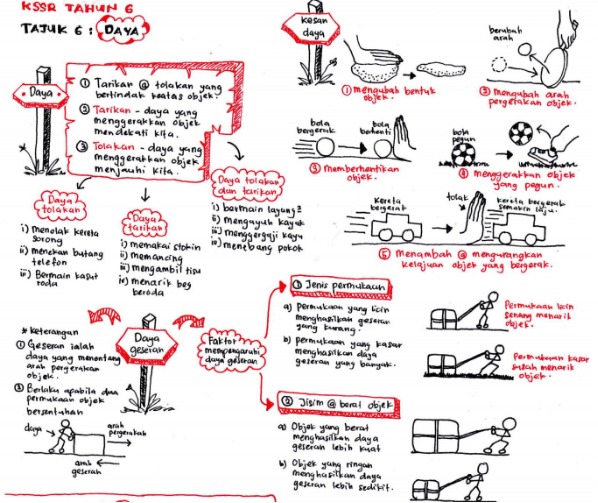 KSSR TAHUN 6
TAJUK 6 : DAYA
Daya
① Tarikan @ tolakan yang
bertindak keatas objek.
② Tarikan - daya yang
menggerakkan objek
mendekati kita.
③ Tolakan - daya yang
menggerakkan objek
menjauhi kita.
Daya
tolakan
i) menolak kereta
sorong
ii) menekan butang
telefon
iii) Bermain kasut
roda
Daya
tarikan
i) memakai stokin
ii) memancing
iii) mengambil tisu
iv) menarik beg
beroda
Daya tolakan
dan tarikan
i) bermain layang²
ii) mengayuh kayak
iii) menggergaji kayu
iv) menebang pokok
kesan
daya
① mengubah bentuk
objek.
berubah
arah
② mengubah arah
pergerakan objek.
bola
bergerak
bola
berhenti
③ memberhentikan
objek.
bola
pegun
④ menggerakkan objek
yang pegun.
kereta
bergerak
tolak
kereta bergerak
semakin laju.
⑤ Menambah @ mengurangkan
kelajuan objek yang bergerak.
* Keterangan
① Geseran ialah
daya yang menentang
arah pergerakan
objek.
② Berlaku apabila dua
permukaan objek
bersentuhan
daya
arah
pergerakan
arah
geseran
Daya
geseran
Faktor
mempengaruhi
daya geseran
① Jenis permukaan
a) permukaan yang licin
menghasilkan geseran
yang kurang.
b) permukaan yang kasar
menghasilkan daya
geseran yang banyak.
Permukaan licin
senang menarik
objek.
Permukaan kasar
susah menarik
objek.
② Jisim @ berat objek
a) Objek yang berat
menghasilkan daya
geseran lebih kuat
b) Objek yang ringan
menghasilkan daya
geseran lebih sedikit.